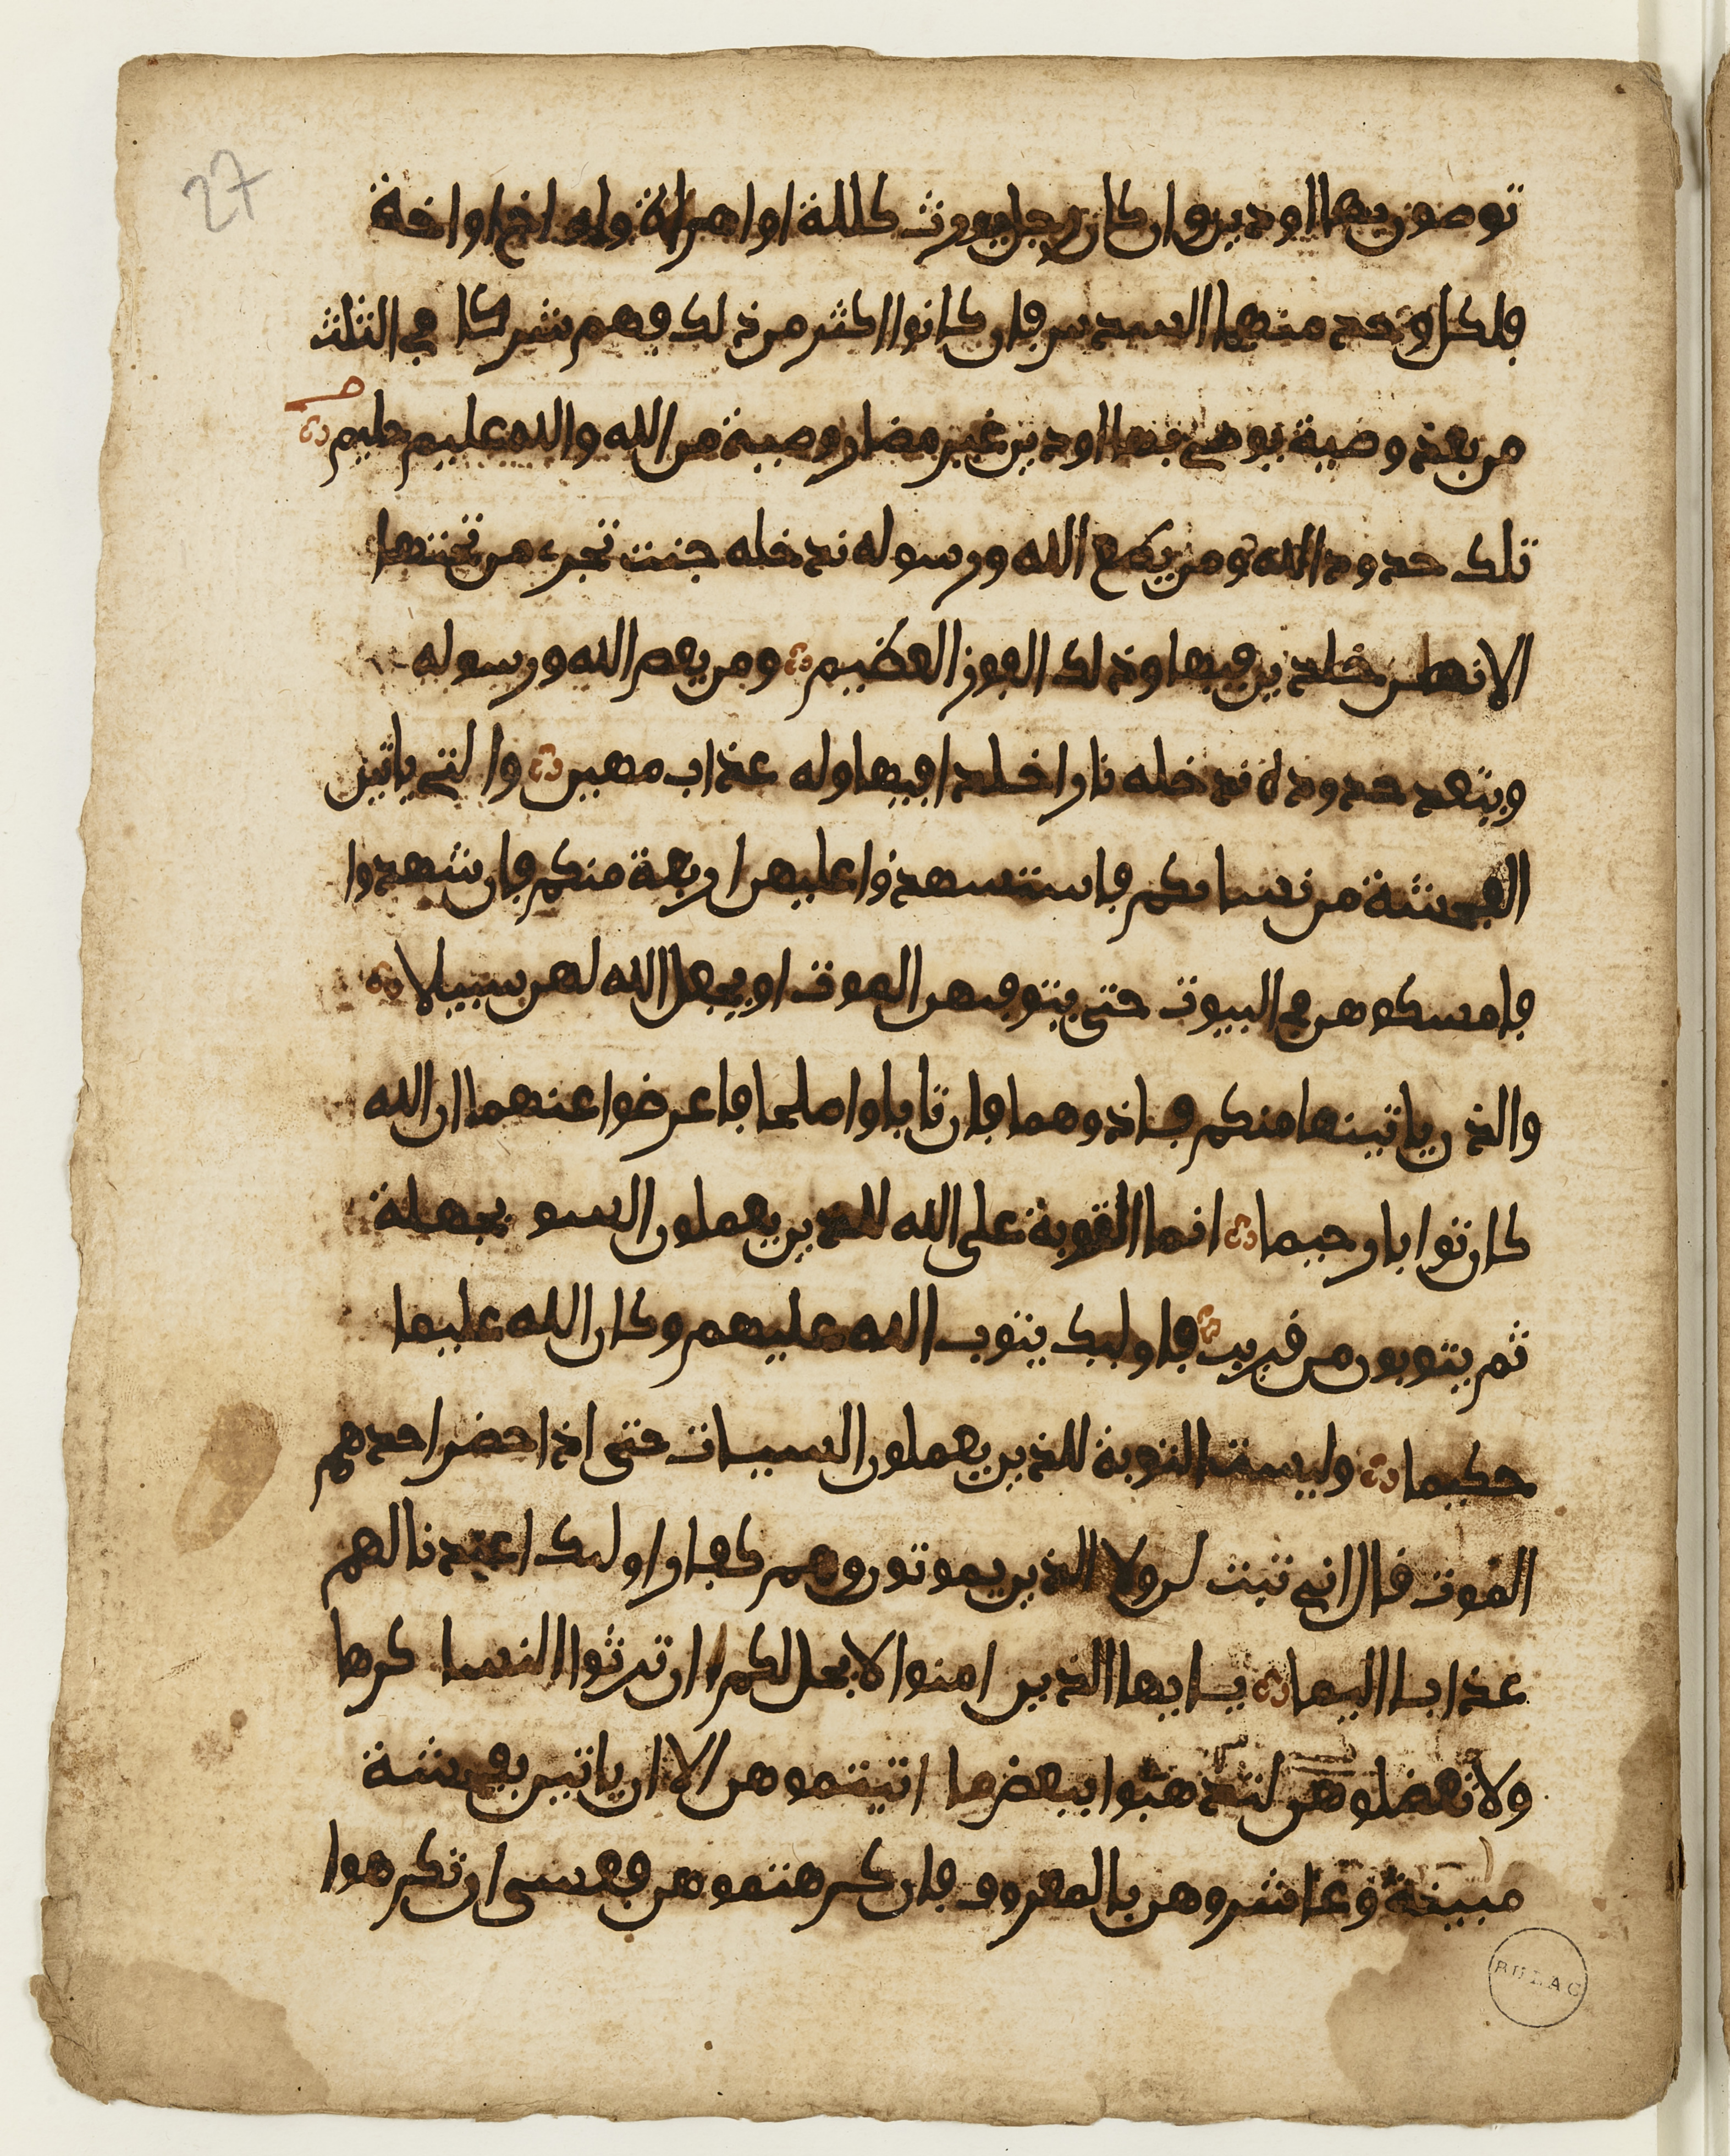 27
توصون بها او دين وان كان رجل يورث كللة او امراة وله اخ او اخة
فلكل وحد منهما السدس فان كانوا اكثر من ذلك فهم شركا في الثلث
من بعد وصية يوصى بها او دين غير مضار وصية من الله والله عليم حليم
تلك حدود الله ومن يطع الله ورسوله ندخله جنت تجري من تحتها
الانهر خلدين فيها وذلك الفوز العظيم ومن يعص الله ورسوله
ويتعد حدوده ندخله نارا خلدا فيها وله عذاب مهين والتي ياتين
الفحشة من نسايكم فاستشهدوا عليهن اربعة منكم فان شهدوا
فامسكوهن في البيوت حتى يتوفيهن الموت او يجعل الله لهن سبيلا
والذن ياتينها منكم فـاذوهما فان تابا واصلحا فاعرضوا عنهما ان الله
كان توابا رحيما انما التوبة على الله للذين يعملون السو بجهلة
ثم يتوبون من قريب فاوليك يتوب الله عليهم وكان الله عليما
حكيما وليست التوبة للذين يعملون السيـات حتى اذا حضر احدهم
الموت قال اني تبت لن ولا الذين يموتون وهم كفار اوليك اعتدنا لهم
عذابـا اليما يـايها الذين امنوا لا يحل لكم ان ترثوا النسا كرها
ولا تعضلوهن لتذهبوا ببعض ما اتيتموهن الا ان ياتين بفحشة
مبينة وعاشروهن بالمعروف فان كرهتموهن فعسى ان تكرهوا
BULAC